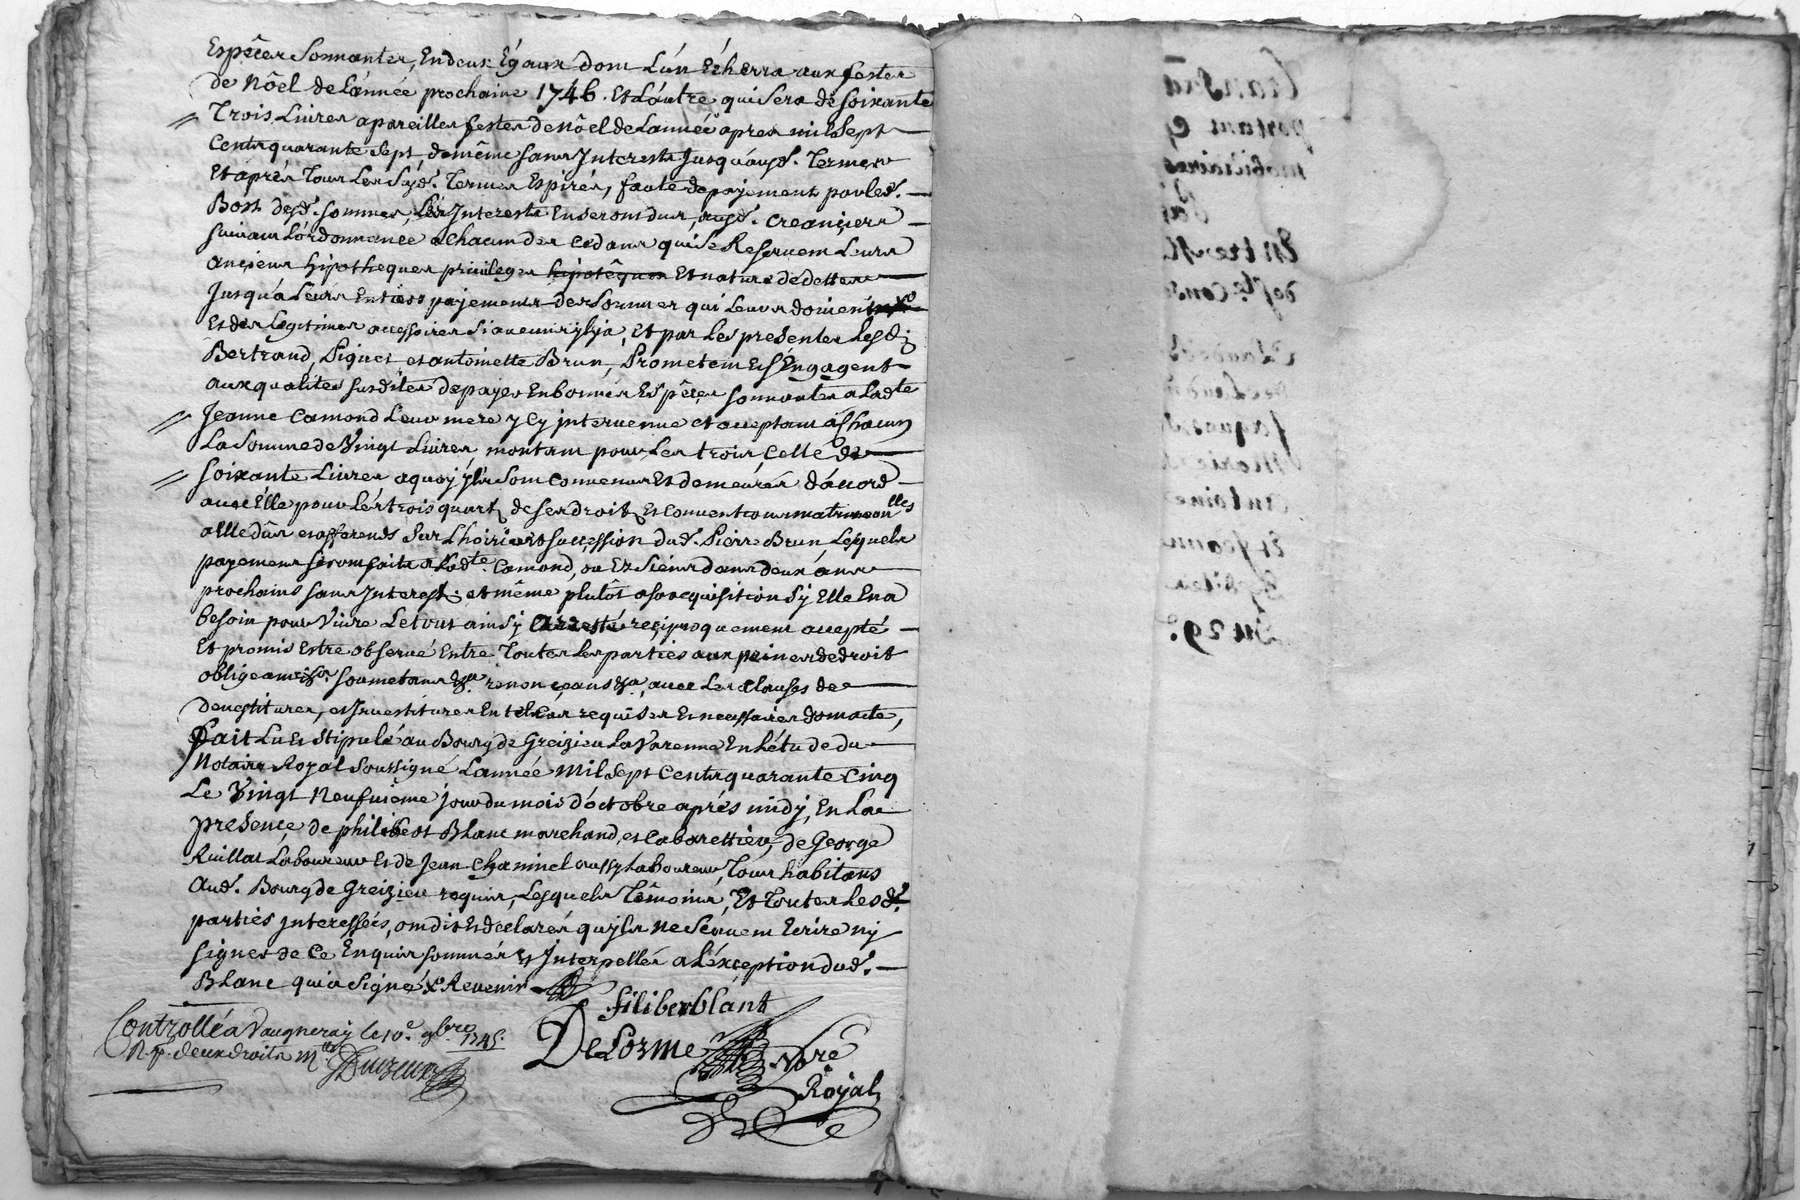 Espêces Sonnantes, En deux Égaux dont L'ún Echerra aux festes
de Nôel de L'année prochaine 1746. Et L'autre qui sera de soixante
Trois Livres a pareilles festes de Nôel de L'année apres mil Sept
Cents quarante Sept, de même sans Interests Jusqu'auxd. Termes
Et aprés Tous Les Susd. Termes Espirés, faute de payements par led.
Bost desd. sommes, Les Interests En seront dus, ausd. creançiers
suivant L'ordonnance a chacun des cedans qui se Reservent Leurs
anciens hipotheques privileges hipotêques Et nature de dettes
Jusqu'a Leurs Entiers payements des Sommes qui Leurs doivent
Et des Legitimes accessoires si aucuns y en a, Et par Les presentes Lesd.
Bertrand, Piquet et antoinette Brun, Promettent Et S'Engagent
aux qualites susdites de payer En bonnes Espêces sonnantes a Ladte
Jeanne Camond Leur mere y Cy intervenue et acceptant a Chacun
La Somme de Vingt Livres, montant pour Les trois, Celle de
Soixante Livres a quoy ils Sont Convenus Et demeurés d'acord
avec Elle pour Les trois quarts de ses droits Et Conventions matrimonlles
a Elle dûs et afferends Sur L'hoirie et succession dud. Pierre Brun Lesquels
payements seront faits a Ladte. Camond, ou Es Siens dans deux ans
prochains sans Interest. et même plutôt a sa requisition Sy Elle En a
besoin pour Vivre Le tout ainsy Arresté reçiproquement accepté
Et promis Estre observé Entre Toutes Les parties aux peines de droit
obligeant &a. soumetans &a. renonçans &a. avec Les Clauses de
devestitures, et Jnvestitures En tel Cas requises Et necessaires dont acte,
Fait Lu Et Stipulé au Bourg de Greizieu La Varenne En L'étude du
Notaire Royal Soussigné L'année Mil Sept Cents quarante Cinq
Le Vingt Neufuiême jour du mois d'octobre aprés midy, En La
presence de philibert Blanc marchand, et Cabarettier, de George
Ruillat Laboureur Et de Jean Chaninel aussy Laboureur, Tous habitans
Aud. Bourg de Greizieu requis, Lesquels Têmoins, Et Toutes Lesd.
parties interessés, ont dit Et declarés qu'ils ne Sçavent Ecrire ny
signer de Ce Enquis sommés & Interpellés a L'éxception dud.
Blanc qui a Signé
filiberblánt
Controllé a Vaugneray le 10e. 9bre 1745.
DeLorme Nore
Royal